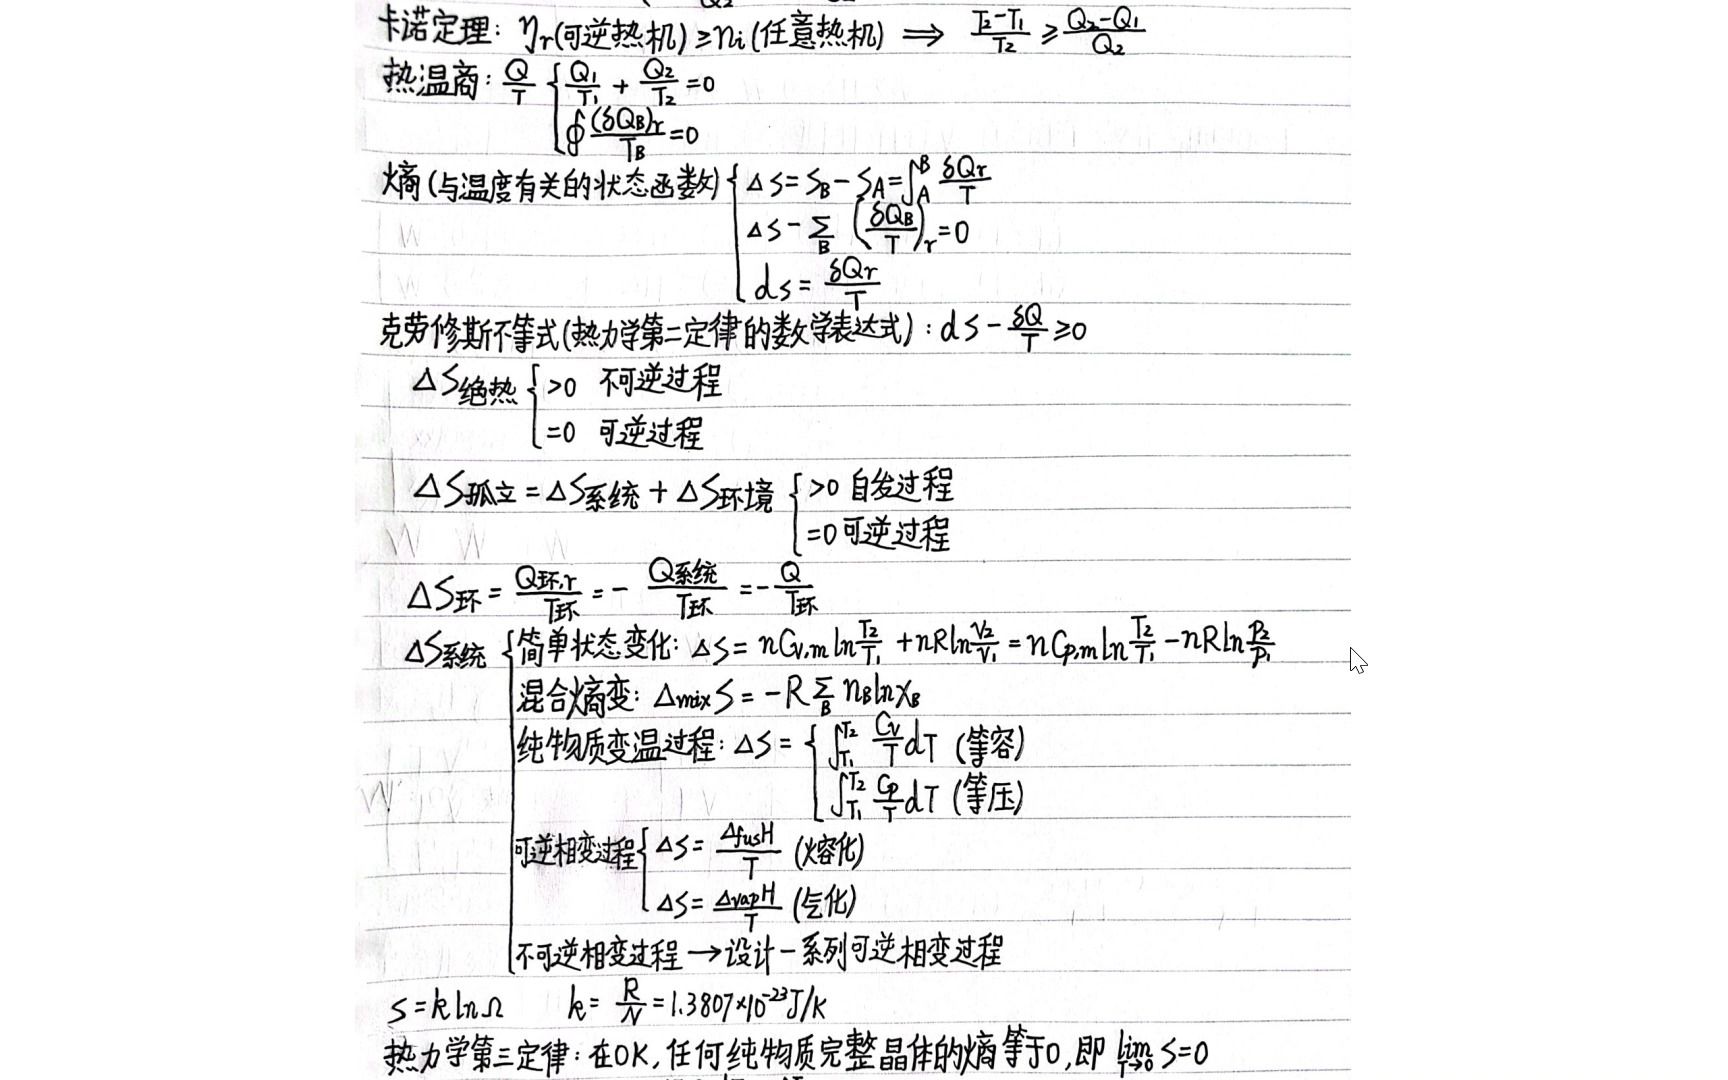 卡诺定理: ηr(可逆热机)≥ηi(任意热机) ⟹ (T2-T1)/T2 ≥ (Q2-Q1)/Q2
热温商: Q/T { Q1/T1 + Q2/T2 =0
∮ (δQB)r/TB =0
熵(与温度有关的状态函数) { ΔS= SB- SA=∫A^B δQr/T
ΔS- Σ_B (δQB/T)r=0
dS= δQr/T
克劳修斯不等式(热力学第二定律的数学表达式): dS- δQ/T ≥0
ΔS绝热 { >0 不可逆过程
=0 可逆过程
ΔS孤立=ΔS系统+ΔS环境 { >0 自发过程
=0 可逆过程
ΔS环= Q环,r/T环 = - Q系统/T环 = - Q/T环
ΔS系统 { 简单状态变化: ΔS= nCv,m ln T2/T1 + nRln V2/V1 = nCp,m ln T2/T1 - nRln P2/P1
混合熵变: ΔmixS = -R Σ_B nBlnxB
纯物质变温过程: ΔS= { ∫T1^T2 Cv/T dT (等容)
∫T1^T2 Cp/T dT (等压)
可逆相变过程 { ΔS= ΔfusH/T (熔化)
ΔS= ΔvapH/T (气化)
不可逆相变过程 → 设计一系列可逆相变过程
S=klnΩ k= R/N =1.3807×10^-23 J/K
热力学第三定律: 在0K, 任何纯物质完整晶体的熵等于0, 即 lim T→0 S=0